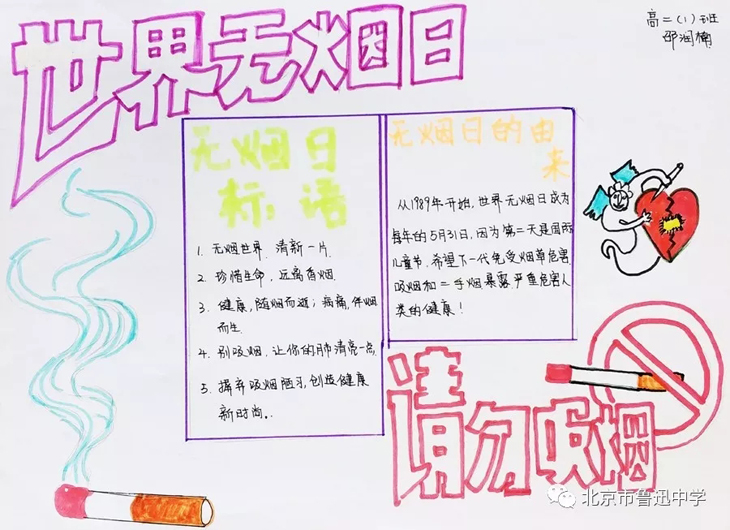 世界无烟日
高二(1)班
邵润楠
无烟日
标语
1. 无烟世界、清新一片.
2. 珍惜生命、远离香烟
3. 健康,随烟而逝;病痛,伴烟
而生.
4. 别吸烟,让你的肺清亮一点.
5. 摒弃吸烟陋习,创造健康
新时尚。
无烟日的由
来
从1989年开始,世界无烟日成为
每年的5月31日,因为第二天是国际
儿童节,希望下一代免受烟草危害
吸烟和二手烟暴露严重危害人
类的健康!
请勿吸烟
北京市鲁迅中学